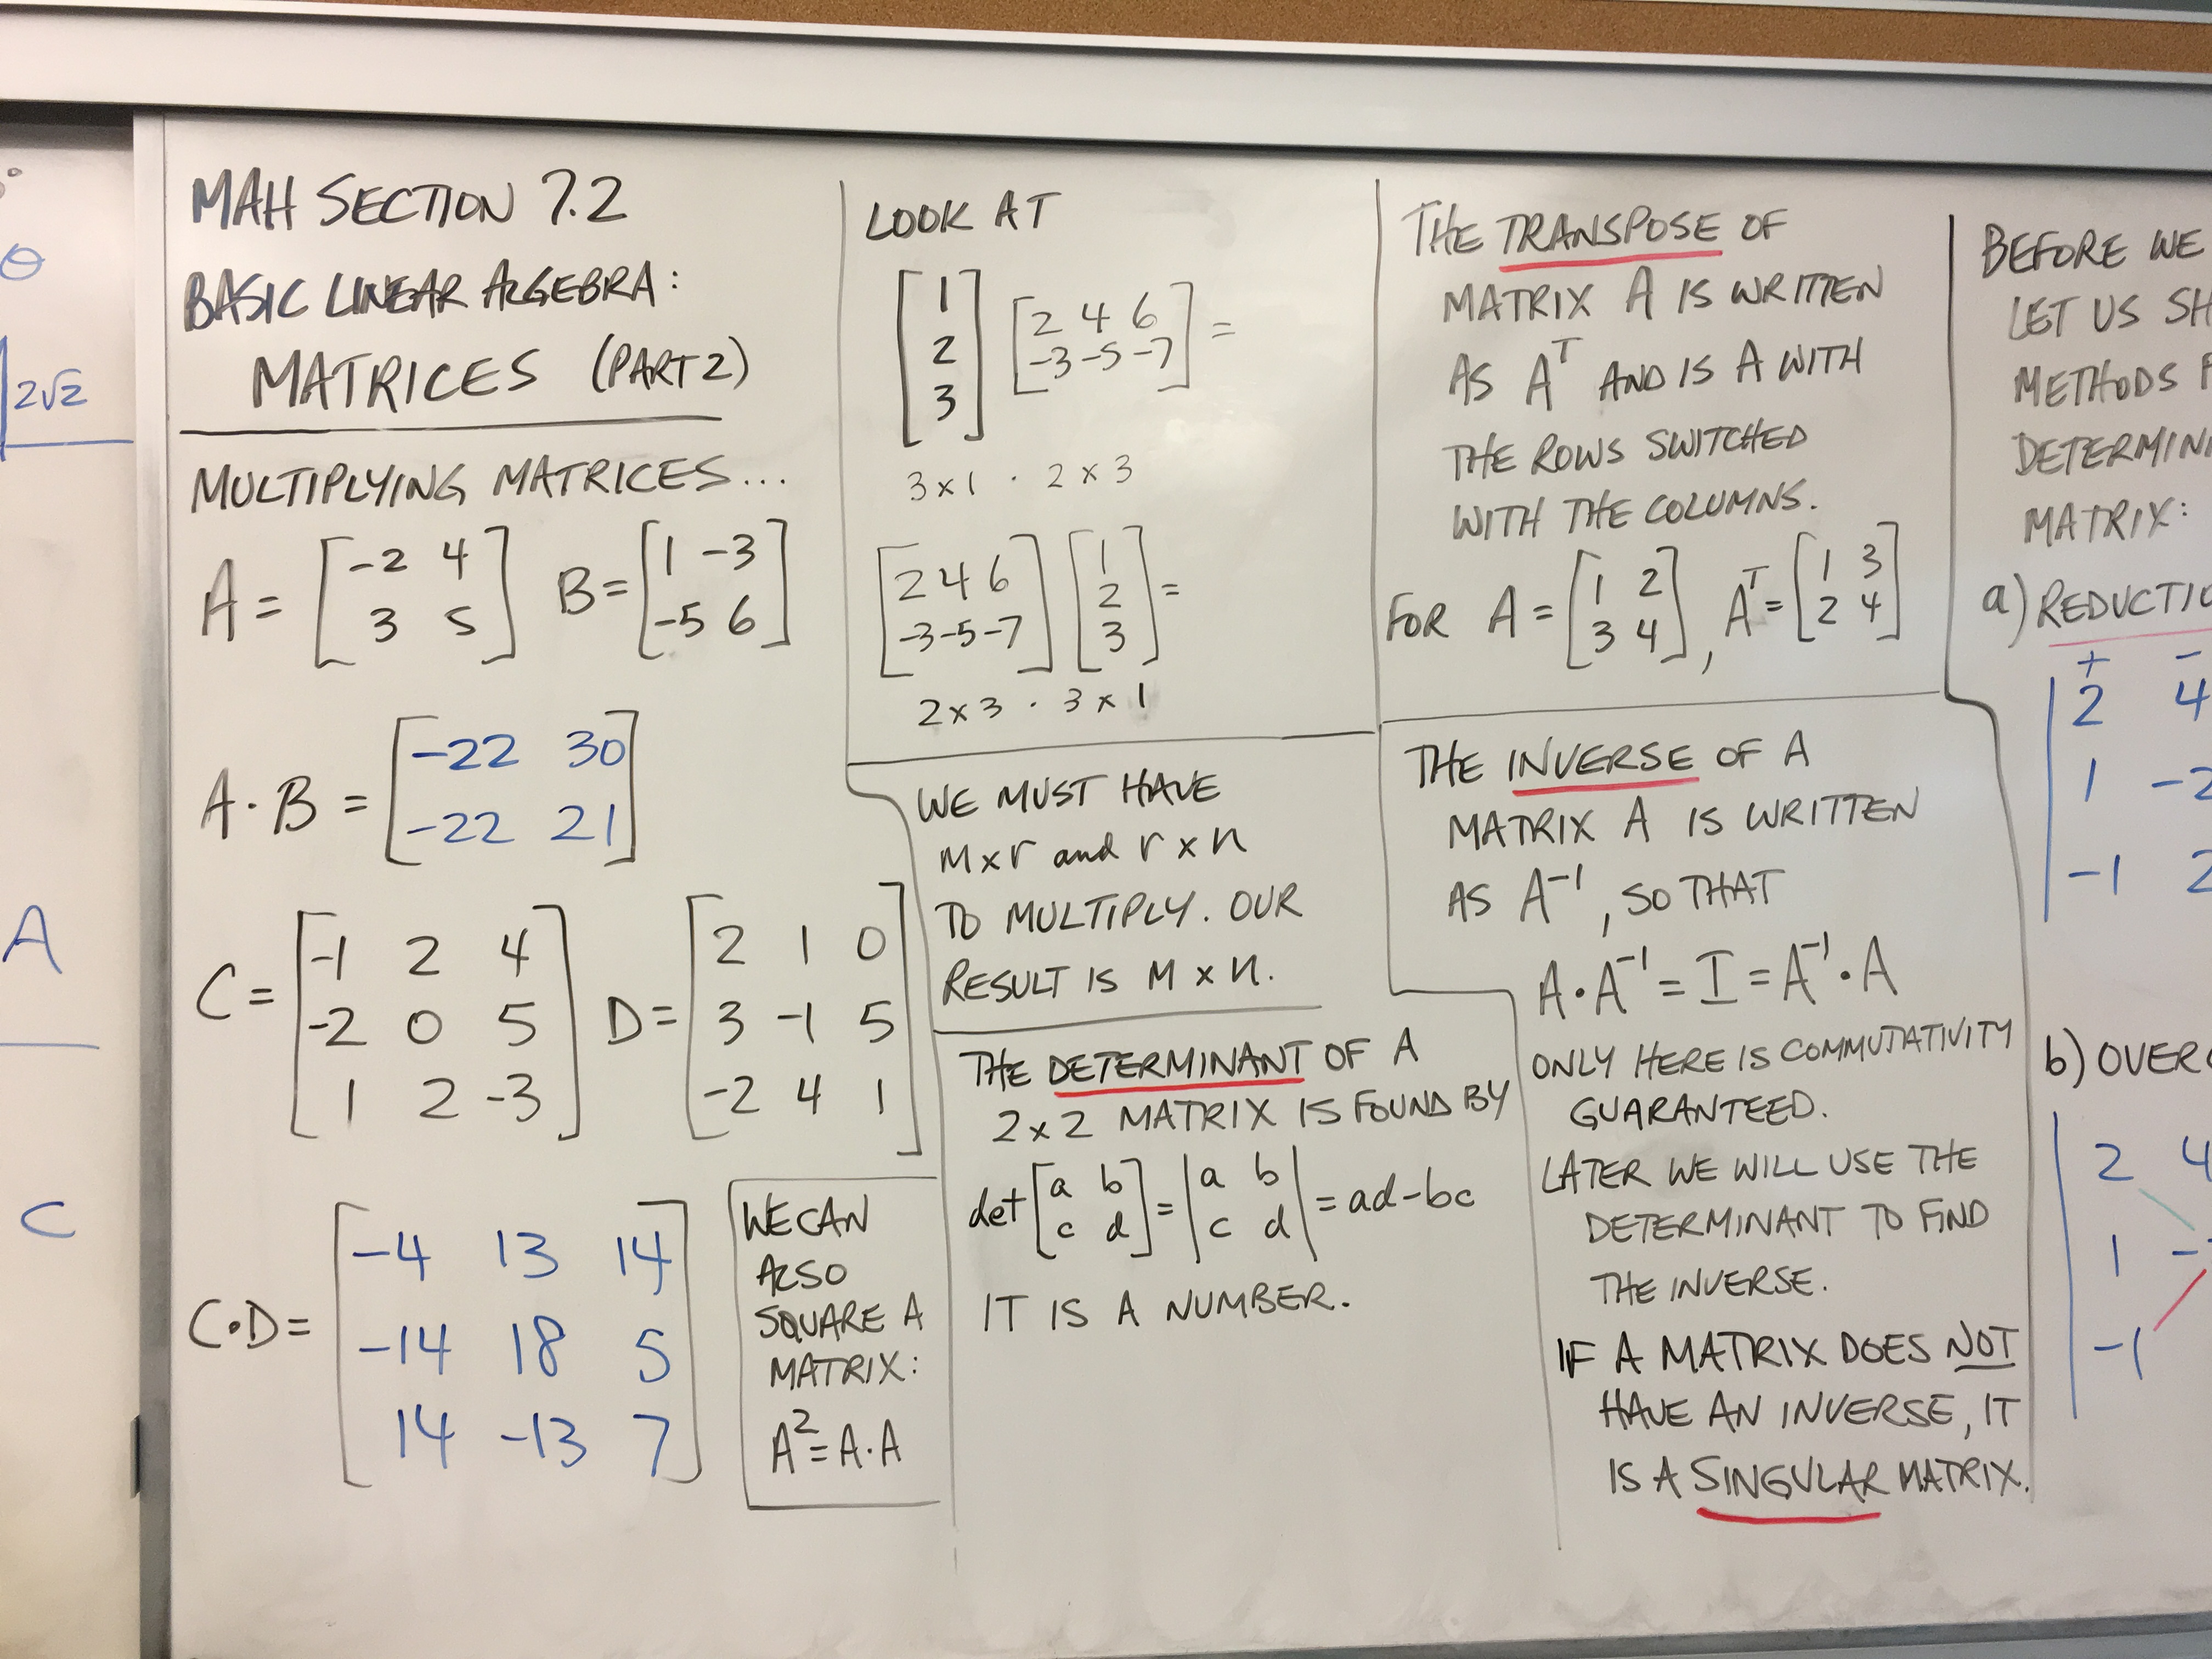 °
θ
2√2
A
C
MAH SECTION 7.2
BASIC LINEAR ALGEBRA:
MATRICES (PART 2)
MULTIPLYING MATRICES...
A = [-2 4
3 5] B = [1 -3
-5 6]
A·B = [-22 30
-22 21]
C = [-1 2 4
-2 0 5
1 2 -3] D = [2 1 0
3 -1 5
-2 4 1]
C·D = [-4 13 14
-14 18 5
14 -13 7]
WE CAN
ALSO
SQUARE A
MATRIX:
A² = A·A
LOOK AT
[1
2
3] [2 4 6
-3 -5 -7] =
3 x 1 · 2 x 3
[2 4 6
-3 -5 -7] [1
2
3] =
2 x 3 · 3 x 1
WE MUST HAVE
m x r and r x n
TO MULTIPLY. OUR
RESULT IS m x n.
THE DETERMINANT OF A
2 x 2 MATRIX IS FOUND BY
det [a b
c d] = |a b
c d| = ad - bc
IT IS A NUMBER.
THE TRANSPOSE OF
MATRIX A IS WRITTEN
AS Aᵀ AND IS A WITH
THE ROWS SWITCHED
WITH THE COLUMNS.
FOR A = [1 2
3 4], Aᵀ = [1 3
2 4]
THE INVERSE OF A
MATRIX A IS WRITTEN
AS A⁻¹, SO THAT
A·A⁻¹ = I = A⁻¹·A
ONLY HERE IS COMMUTATIVITY
GUARANTEED.
LATER WE WILL USE THE
DETERMINANT TO FIND
THE INVERSE.
IF A MATRIX DOES NOT
HAVE AN INVERSE, IT
IS A SINGULAR MATRIX.
BEFORE WE
LET US SH
METHODS F
DETERMIN
MATRIX:
a) REDUCTIO
+ -
2 4
1 -2
-1 2
b) OVER
2 4
1 -
-1